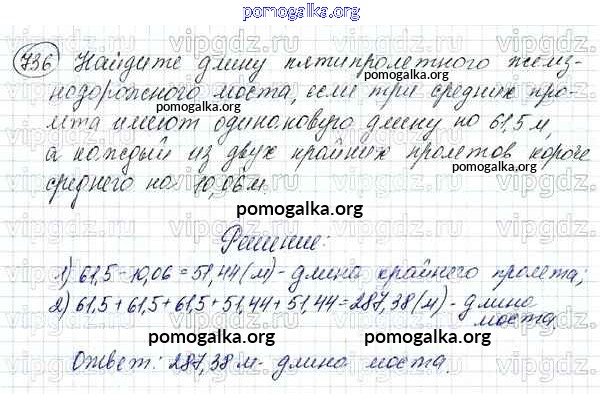 pomogalka.org
736 Найдите длину пятипролетного желез-
нодорожного моста, если три средних про-
лёта имеют одинаковую длину по 61,5 м,
а каждый из двух крайних пролетов короче
среднего на 10,06 м.
pomogalka.org
Решение:
1) 61,5-10,06=51,44(м)- длина крайнего пролета;
2) 61,5+61,5+61,5+51,44+51,44=287,38(м)- длина
моста.
pomogalka.org pomogalka.org
Ответ: 287,38 м- длина моста.
pomogalka.org